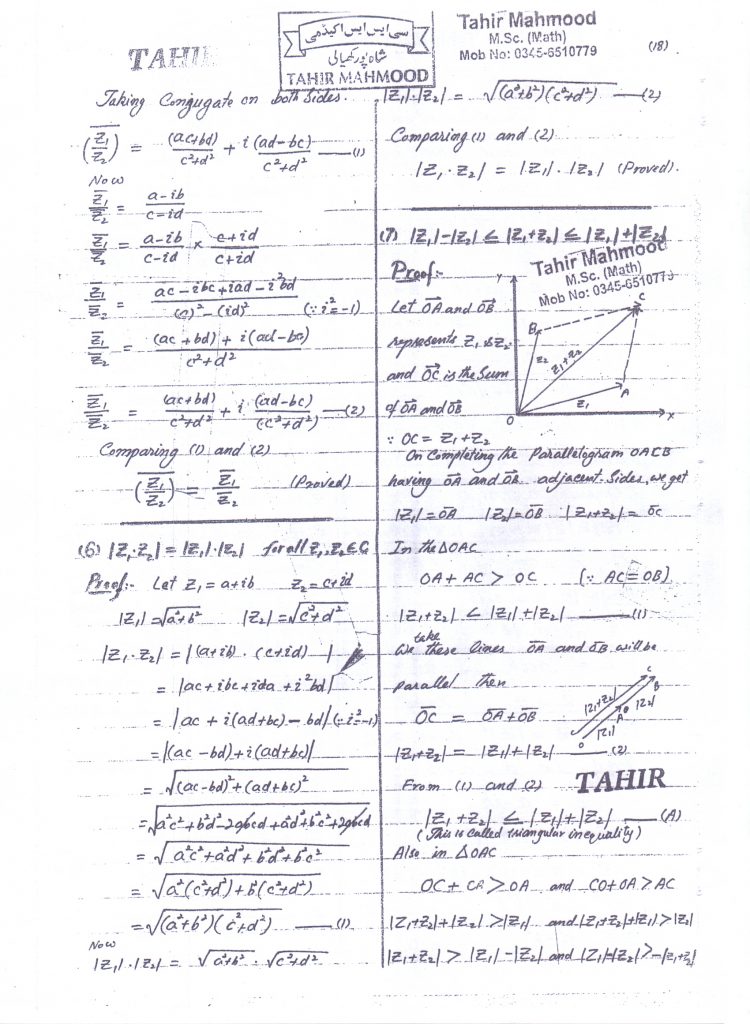 TAHIR
سی ایس ایس اکیڈمی
شاہ پور کھیالی
TAHIR MAHMOOD
Tahir Mahmood
M.Sc. (Math)
Mob No: 0345-6510779
(18)
Taking Conjugate on both Sides.
(z̅₁/z₂) = (ac+bd)/(c²+d²) + i (ad-bc)/(c²+d²) —(1)
Now
z̅₁/z̅₂ = (a-ib)/(c-id)
z̅₁/z̅₂ = (a-ib)/(c-id) × (c+id)/(c+id)
z̅₁/z̅₂ = (ac-ibc+iad-i²bd)/((c)²-(id)²) (∵ i²=-1)
z̅₁/z̅₂ = ((ac+bd)+i(ad-bc))/(c²+d²)
z̅₁/z̅₂ = (ac+bd)/(c²+d²) + i (ad-bc)/(c²+d²) —(2)
Comparing (1) and (2)
(z̅₁/z₂) = z̅₁/z̅₂ (Proved)
(6) |z₁.z₂| = |z₁|.|z₂| for all z₁,z₂∈C
Proof:- Let z₁=a+ib z₂=c+id
|z₁|=√(a²+b²) |z₂|=√(c²+d²)
|z₁.z₂| = |(a+ib).(c+id)|
= |ac+ibc+ida+i²bd|
= |ac+i(ad+bc)-bd| (∵ i²=-1)
= |(ac-bd)+i(ad+bc)|
= √((ac-bd)²+(ad+bc)²)
= √(a²c²+b²d²-2abcd+a²d²+b²c²+2abcd)
= √(a²c²+a²d²+b²d²+b²c²)
= √(a²(c²+d²)+b²(c²+d²))
= √((a²+b²)(c²+d²)) —(1)
Now
|z₁|.|z₂| = √(a²+b²).√(c²+d²)
|z₁|.|z₂| = √((a²+b²)(c²+d²)) —(2)
Comparing (1) and (2)
|z₁.z₂| = |z₁|.|z₂| (Proved).
(7) |z₁|-|z₂| ≤ |z₁+z₂| ≤ |z₁|+|z₂|
Tahir Mahmood
M.Sc. (Math)
Mob No: 0345-6510779
Proof:-
Y
C
B
z₂
z₁+z₂
A
z₁
O
X
Let OA and OB
represents z₁ & z₂
and OC is the Sum
of OA and OB
∵ OC = z₁+z₂
On Completing the Parallelogram OACB
having OA and OB adjacent Sides, we get
|z₁|=OA |z₂|=OB |z₁+z₂|=OC
In the ΔOAC
OA+AC > OC (∵ AC=OB)
|z₁+z₂| < |z₁|+|z₂| —(1)
We take these lines OA and OB will be
parallel then
OC = OA+OB
C
B
|z₁+z₂|
B
|z₂|
A
|z₁|
O
|z₁+z₂| = |z₁|+|z₂| —(2)
From (1) and (2)
TAHIR
|z₁+z₂| ≤ |z₁|+|z₂| —(A)
(This is called triangular inequality)
Also in ΔOAC
OC+CA > OA and CO+OA > AC
|z₁+z₂|+|z₂| > |z₁| and |z₁+z₂|+|z₁| > |z₂|
|z₁+z₂| > |z₁|-|z₂| and |z₁|-|z₂| > -|z₁+z₂|